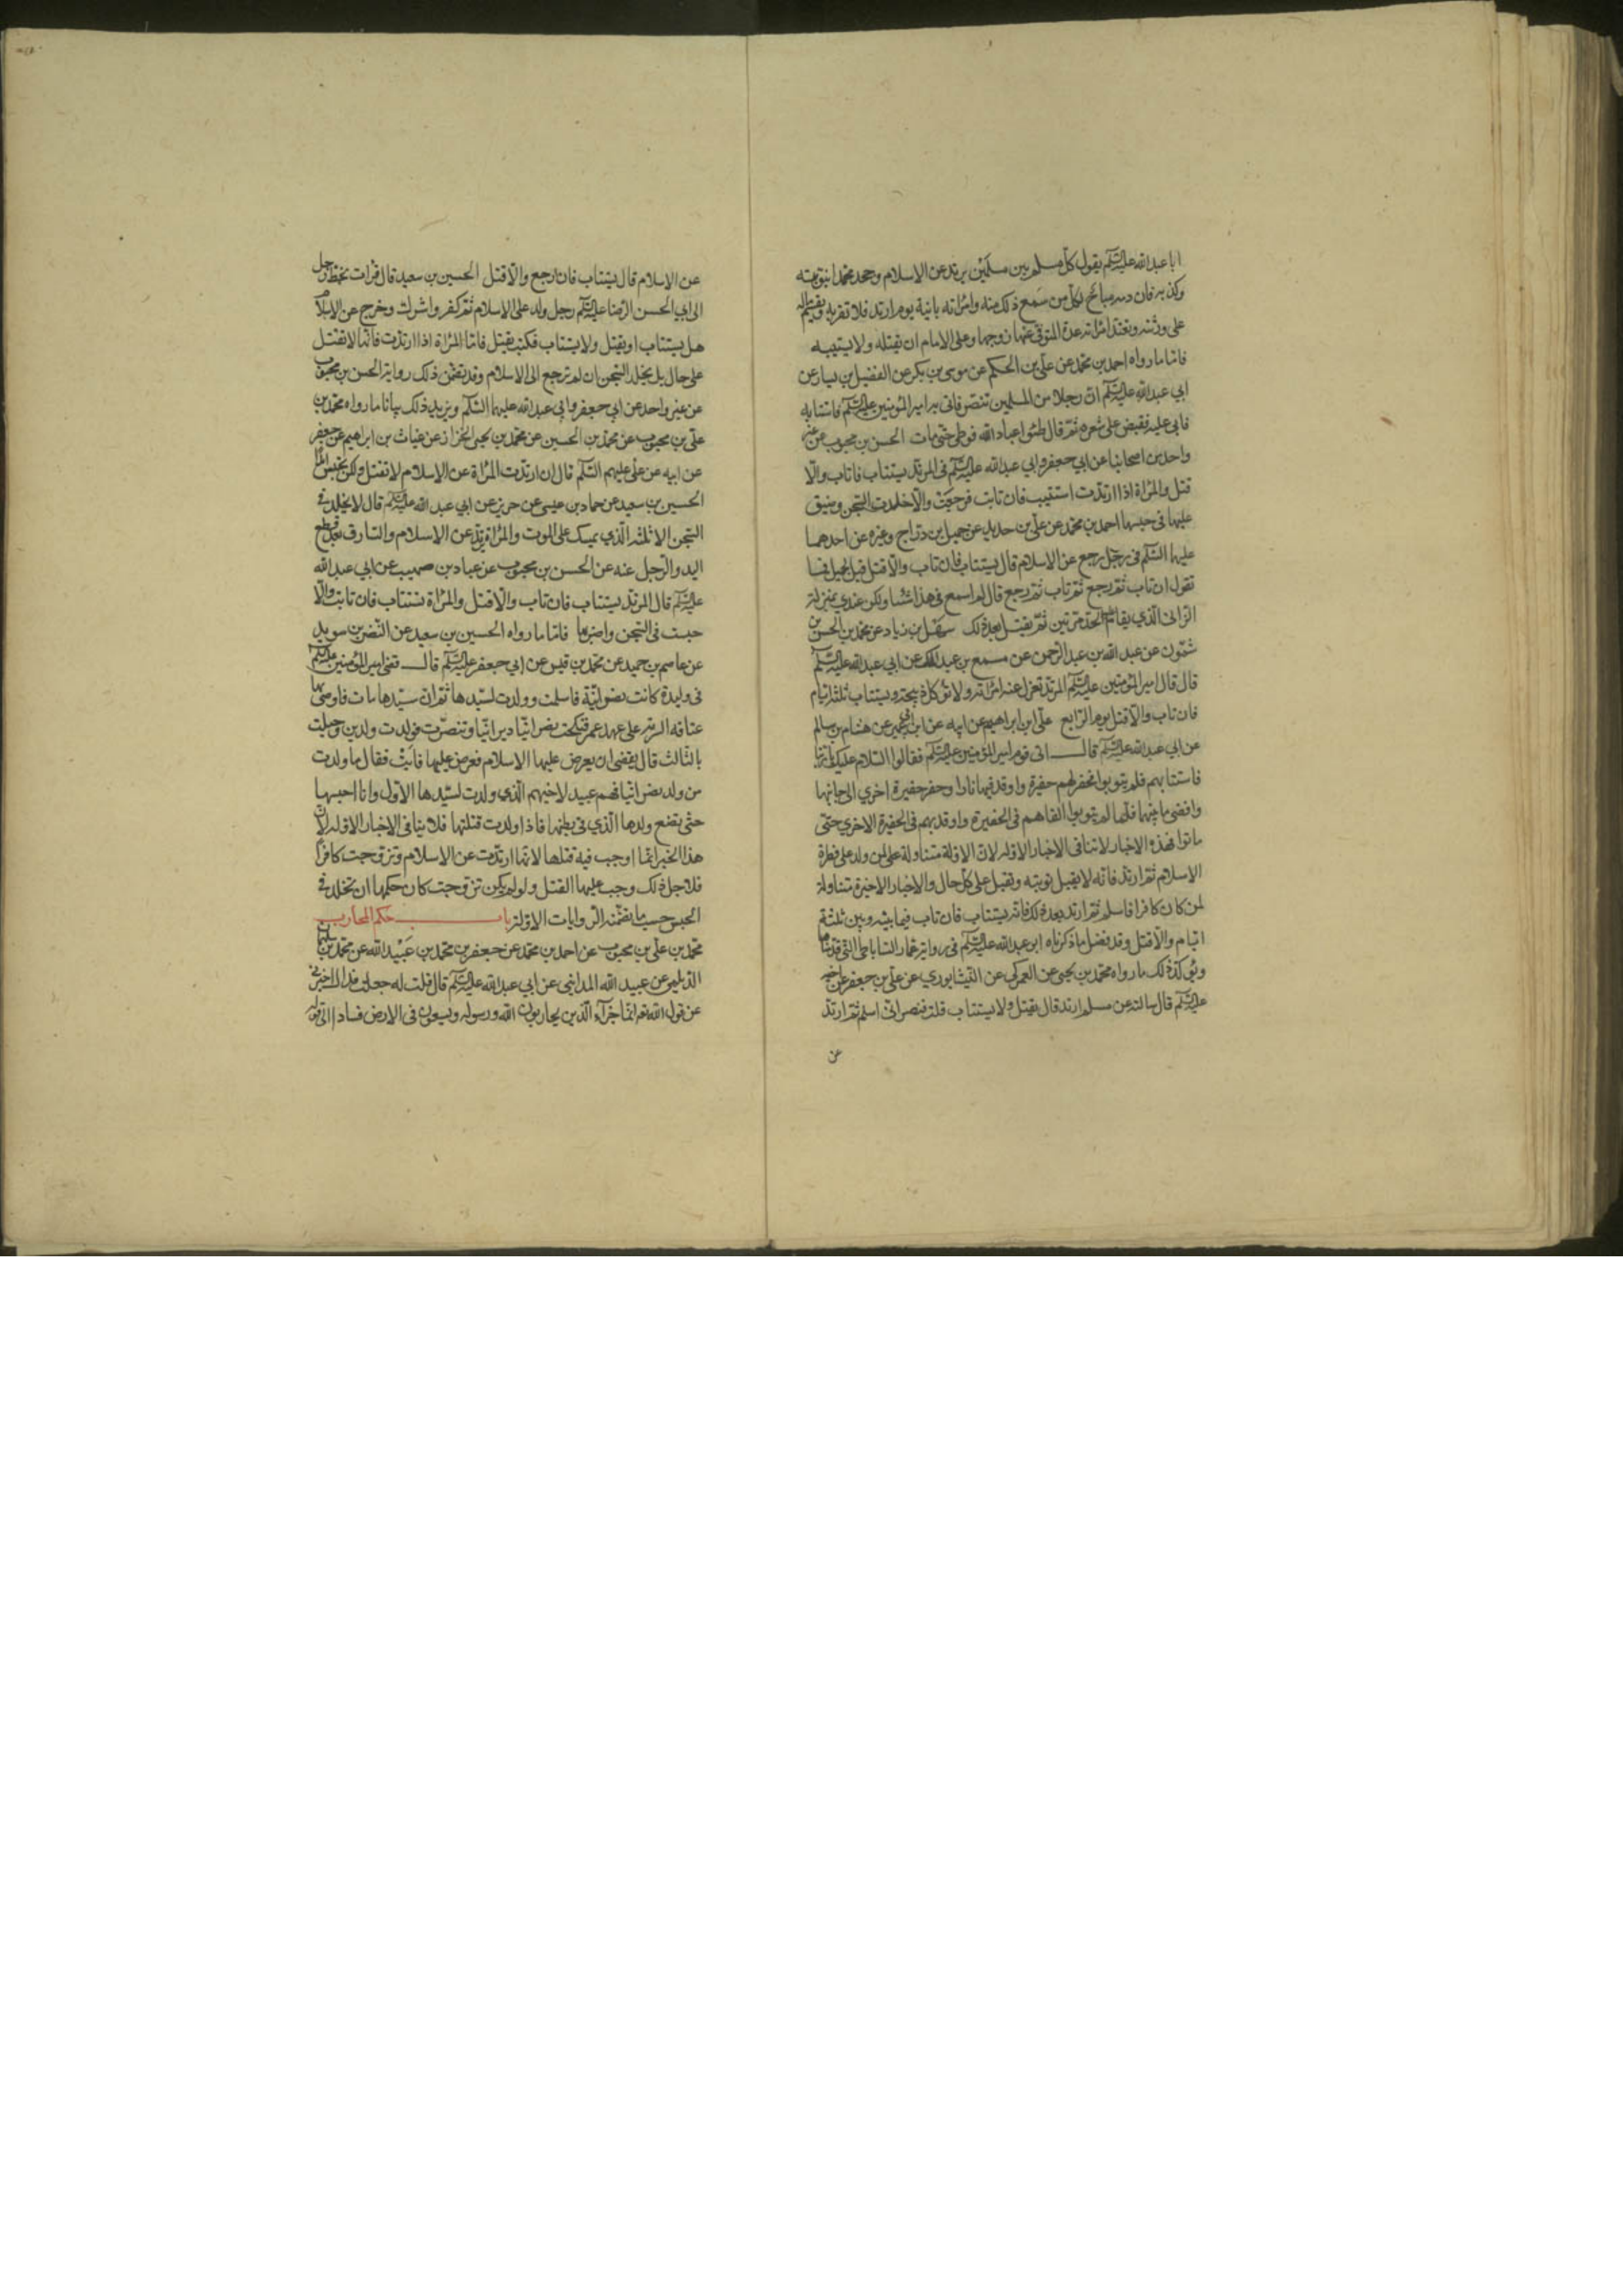 ابا عبد الله عليه السلم يقول كل مسلم بين مسلمين يرتد عن الاسلام وجحد محمدا نبوته
وكذبه فان دمه مباح لكل من سمع ذلك منه وامراته باينة يوم ارتد فلا تقربه ويقسم ماله
على ورثته وتعتد امراته عدة المتوفى عنها زوجها وعلى الامام ان يقتله ولا يستتيبه
فاما ما رواه احمد بن محمد عن علي بن الحكم عن موسى بن بكر عن الفضيل بن يسار عن
ابي عبد الله عليه السلم ان رجلا من المسلمين تنصر فاتى به امير المؤمنين عليه السلم فاستتابه
فابى عليه فقبض على شعره ثم قال طئوا عباد الله فوطى حتى مات الحسن بن محبوب عن غير
واحد من اصحابنا عن ابي جعفر وابي عبد الله عليه السلم في المرتد يستتاب فان تاب والا
قتل والمراة اذا ارتدت استتيب فان تابت فرجعت والا خلدت السجن وضيق
عليها في حبسها احمد بن محمد عن علي بن حديد عن جميل بن دراج وغيره عن احدهما
عليهما السلم في رجل رجع عن الاسلام قال يستتاب فان تاب والا قتل قيل لجميل فما
تقول ان تاب ثم رجع ثم تاب ثم رجع قال لم اسمع في هذا شيئا ولكن عندي بمنزلة
الزاني الذي يقام عليه الحد مرتين ثم يقتل بعد ذلك سهل بن زياد عن محمد بن الحسن بن
شمون عن عبد الله بن عبد الرحمن عن مسمع بن عبد الملك عن ابي عبد الله عليه السلم
قال قال امير المؤمنين عليه السلم المرتد تعزل عنه امراته ولا تؤكل ذبيحته ويستتاب ثلثة ايام
فان تاب والا قتل يوم الرابع علي ابن ابراهيم عن ابيه عن ابن ابي عمير عن هشام بن سالم
عن ابي عبد الله عليه السلم قال اتى قوم امير المؤمنين عليه السلم فقالوا السلام عليك يا ربنا
فاستتابهم فلم يتوبوا فحفر لهم حفيرة واوقد فيها نارا وحفر حفيرة اخري الى جانبها
وافضى ما بينهما فلما لم يتوبوا القاهم في الحفيرة واوقد بهم في الحفيرة الاخري حتى
ماتوا فهذه الاخبار لا تنافى الاخبار الاوله لان الاولة متناولة على من ولد على فطرة
الاسلام ثم ارتد فانه لا يقبل توبته وتقبل على كل حال والاخبار الاخيرة متناولة
لمن كان كافرا فاسلم ثم ارتد بعد ذلك فانه يستتاب فان تاب فيما بينه وبين ثلثة
ايام والا قتل وقد فصل ما ذكرناه ابو عبد الله عليه السلم في رواية عمار الساباطي التي قدمناها
ويؤكد ذلك ما رواه محمد بن يحيى عن العمركي عن النيشابوري عن علي بن جعفر عن اخيه
عليه السلم قال سالته عن مسلم ارتد قال يقتل ولا يستتاب قلت فنصراني اسلم ثم ارتد
عن
عن الاسلام قال يستتاب فان رجع والا قتل الحسين بن سعيد قال قرات بخط رجل
الى ابي الحسن الرضا عليه السلم رجل ولد على الاسلام ثم كفر واشرك وخرج عن الاسلام
هل يستتاب او يقتل ولا يستتاب فكتب يقتل فاما المراة اذا ارتدت فانها لا تقتل
على حال بل يخلد السجن ان لم ترجع الى الاسلام وقد تضمن ذلك رواية الحسن بن محبوب
عن غير واحد عن ابي جعفر وابي عبد الله عليهما السلم ويزيد ذلك بيانا ما رواه محمد بن
علي بن محبوب عن محمد بن الحسين عن محمد بن يحيى الخزاز عن غياث بن ابراهيم عن جعفر
عن ابيه عن علي عليهم السلم قال ان ارتدت المراة عن الاسلام لا تقتل ولكن تحبس ابدا
الحسين بن سعيد عن حماد بن عيسى عن حريز عن ابي عبد الله عليه السلم قال لا يخلد في
السجن الا ثلثه الذي يمسك على الموت والمراة ترتد عن الاسلام والسارق بعد قطع
اليد والرجل عنه عن الحسن بن محبوب عن عباد بن صهيب عن ابي عبد الله
عليه السلم قال المرتد يستتاب فان تاب والا قتل والمراة تستتاب فان تابت والا
حبست في السجن واضر بها فاما ما رواه الحسين بن سعيد عن النضر بن سويد
عن عاصم بن حميد عن محمد بن قيس عن ابي جعفر عليه السلم قال قضى امير المؤمنين عليه السلم
في وليدة كانت نصرانية فاسلمت وولدت لسيدها ثم ان سيدها مات فاوصى بها
عتاقه السريه على عهد عمر فنكحت نصرانيا ديرانيا وتنصرت فولدت ولدين وحبلت
بالثالث قال يقضى ان يعرض عليها الاسلام فعرض عليها فابت فقال ما ولدت
من ولد نصرانيا فهم عبيد لاخيهم الذي ولدت لسيدها الاول وانا احبسها
حتى تضع ولدها الذي في بطنها فاذا ولدت قتلتها فلا ينافى الاخبار الاوله لان
هذا الخبر انما اوجب فيه قتلها لانها ارتدت عن الاسلام وتزوجت كافرا
فلاجل ذلك وجب عليها القتل ولو لم يكن تزوجت كان حكمها ان تخلد في
الحبس حسب ما تضمنه الروايات الاوله باب حكم المحارب
محمد بن علي بن محبوب عن احمد بن محمد عن جعفر بن محمد بن عبيد الله عن محمد بن سليمان
الديلمي عن عبيد الله المدايني عن ابي عبد الله عليه السلم قال قلت له جعلت فداك اخبرني
عن قول الله تعـ انما جزاء الذين يحاربون الله ورسوله ويسعون في الارض فسادا الى قوله